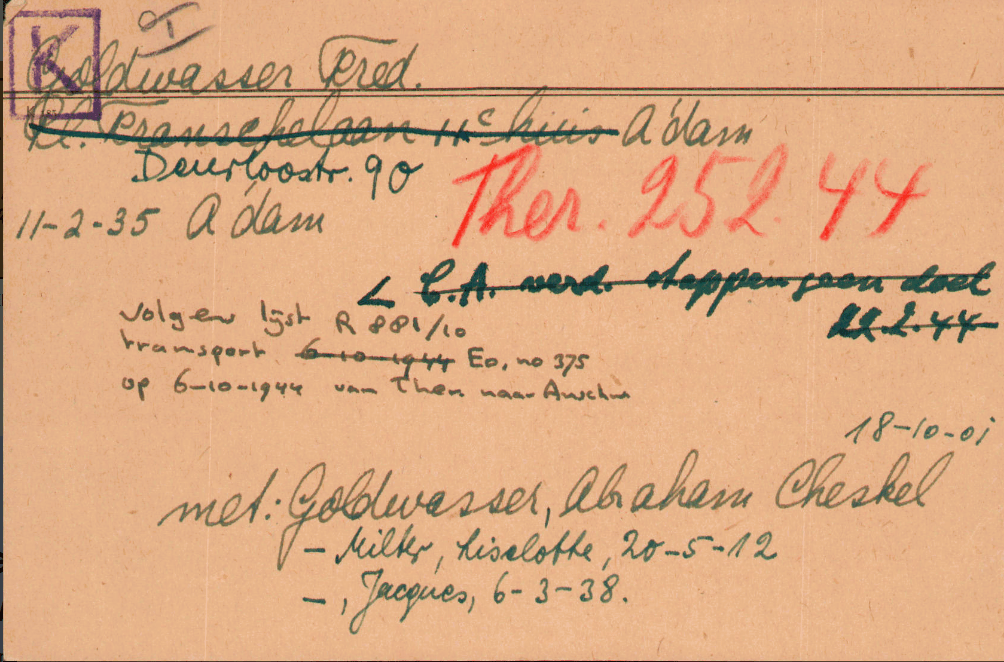 K
Goldwasser Fred.
A'dam
Deurloostr. 90
Ther. 25 2. 44
11-2-35 A'dam
< C.A. verd. stappen geen doel
22.2.44
volgens lijst R 881/10
transport 6-10-1944 Eo, no 375
op 6-10-1944 van Ther naar Auschw
18-10-01
met: Goldwasser, Abraham Cheskel
- Milter, Liselotte, 20-5-12
- , Jacques, 6-3-38.